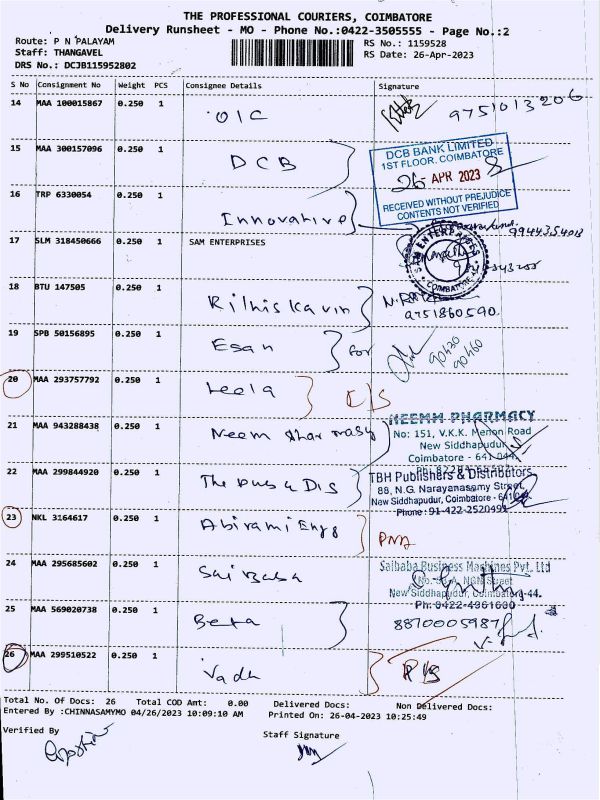 THE PROFESSIONAL COURIERS, COIMBATORE
Delivery Runsheet - MO - Phone No.:0422-3505555 - Page No.:2
Route: P N PALAYAM
Staff: THANGAVEL
DRS No.: DCJB115952802
RS No.: 1159528
RS Date: 26-Apr-2023
S No Consignment No Weight PCS Consignee Details Signature
14 MAA 100015867 0.250 1 OIC 9751013206
15 MAA 300157096 0.250 1 DCB
DCB BANK LIMITED
1ST FLOOR, COIMBATORE
26 APR 2023
RECEIVED WITHOUT PREJUDICE
CONTENTS NOT VERIFIED
16 TRP 6330054 0.250 1 Innovative
9944354013
17 SLM 318450666 0.250 1 SAM ENTERPRISES
SAM ENTERPRISES
COIMBATORE
18 BTU 147505 0.250 1
9751860590
19 SPB 50156895 0.250 1 Esan for
90430
90460
20 MAA 293757792 0.250 1 Leela
21 MAA 943288438 0.250 1 Neem
NEEMM PHARMACY
No: 151, V.K.K. Menon Road
New Siddhapudur,
Coimbatore - 641 044.
22 MAA 299844920 0.250 1 The Pub & Dis
TBH Publishers & Distributors
88, N.G. Narayanasamy Street,
New Siddhapudur, Coimbatore - 641044
Phone : 91-422-2520491
23 NKL 3164617 0.250 1 Abirami Engg
24 MAA 295685602 0.250 1 Sai Baba
Saibaba Business Machines Pvt. Ltd
New Siddhapudur, Coimbatore-44.
Ph: 0422-4961600
25 MAA 569020738 0.250 1 Beta 8870005987
26 MAA 299510522 0.250 1
Total No. Of Docs: 26 Total COD Amt: 0.00 Delivered Docs: Non Delivered Docs:
Entered By :CHINNASAMYMO 04/26/2023 10:09:10 AM Printed On: 26-04-2023 10:25:49
Verified By
Staff Signature